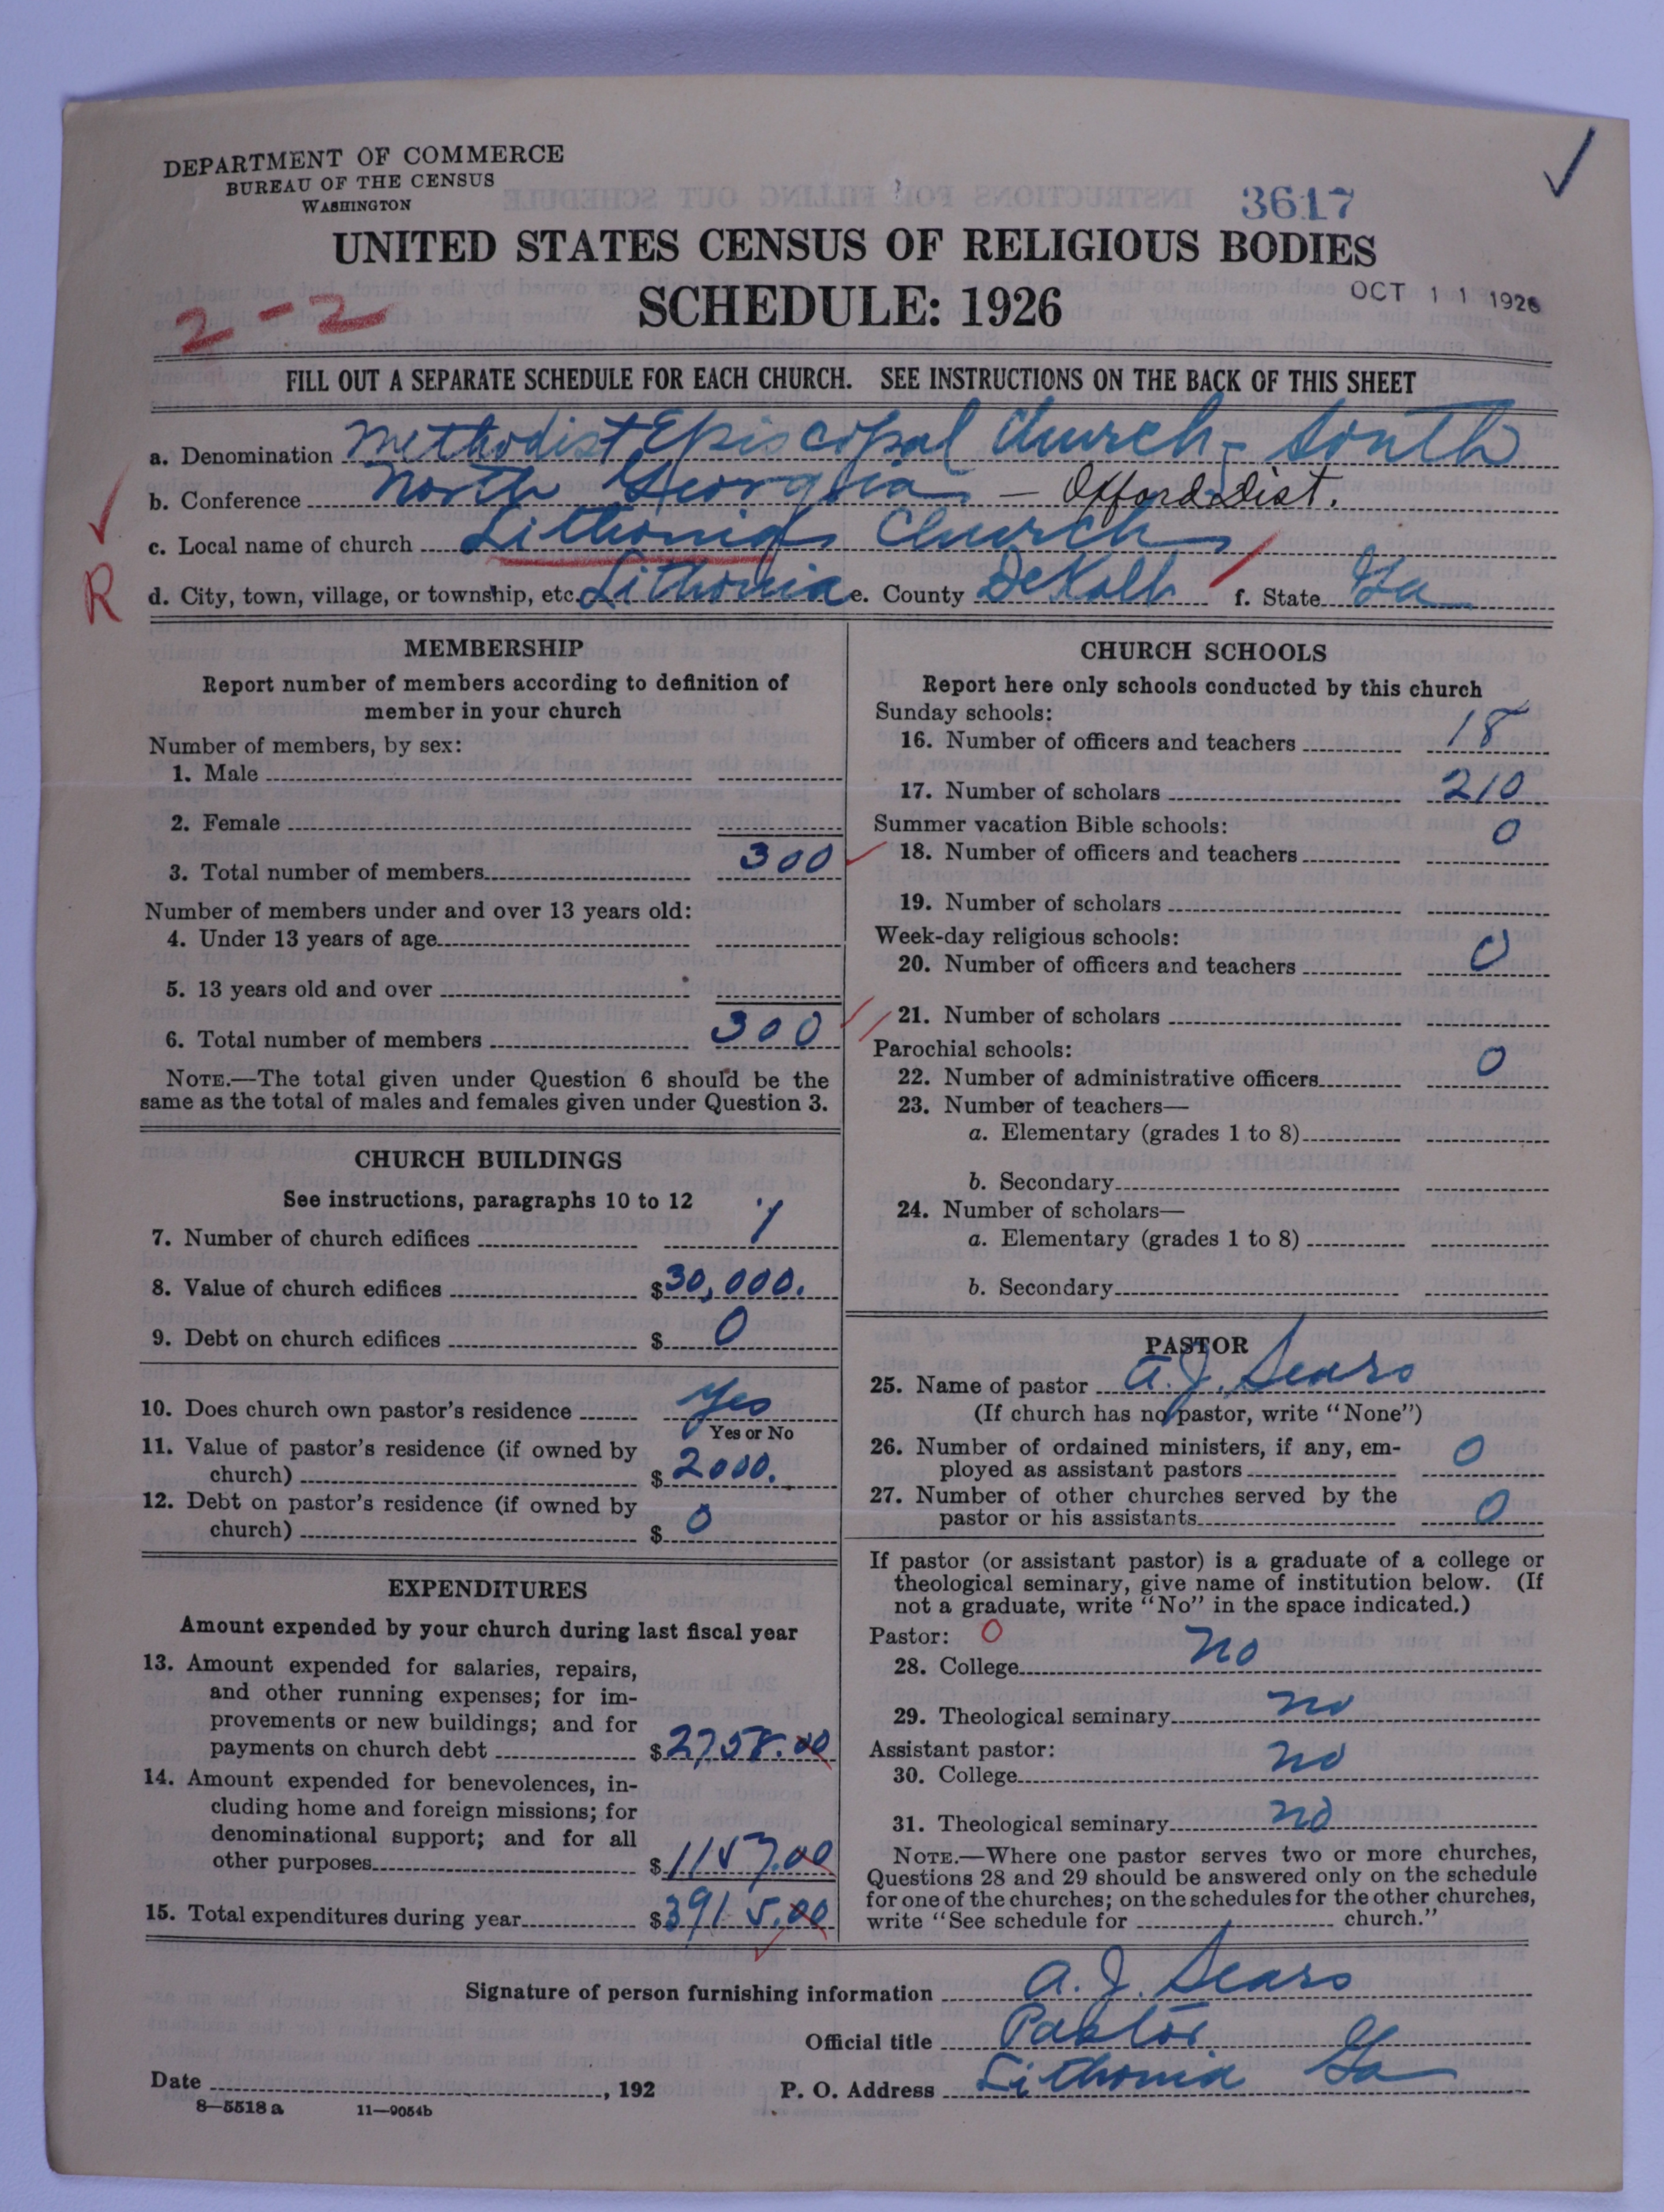 DEPARTMENT OF COMMERCE
BUREAU OF THE CENSUS
WASHINGTON
3617
UNITED STATES CENSUS OF RELIGIOUS BODIES
SCHEDULE: 1926
OCT 11 1926
2-2
FILL OUT A SEPARATE SCHEDULE FOR EACH CHURCH. SEE INSTRUCTIONS ON THE BACK OF THIS SHEET
a. Denomination Methodist Episcopal Church, South
b. Conference North Georgia — Oxford Dist.
c. Local name of church Lithonia Church
R
d. City, town, village, or township, etc. Lithonia e. County DeKalb f. State Ga
MEMBERSHIP
Report number of members according to definition of
member in your church
Number of members, by sex:
1. Male
2. Female
3. Total number of members 300
Number of members under and over 13 years old:
4. Under 13 years of age
5. 13 years old and over
6. Total number of members 300
NOTE.—The total given under Question 6 should be the
same as the total of males and females given under Question 3.
CHURCH BUILDINGS
See instructions, paragraphs 10 to 12
7. Number of church edifices 1
8. Value of church edifices $30,000.
9. Debt on church edifices $0
10. Does church own pastor's residence Yes
Yes or No
11. Value of pastor's residence (if owned by
church) $2000.
12. Debt on pastor's residence (if owned by
church) $0
EXPENDITURES
Amount expended by your church during last fiscal year
13. Amount expended for salaries, repairs,
and other running expenses; for im-
provements or new buildings; and for
payments on church debt $2758.00
14. Amount expended for benevolences, in-
cluding home and foreign missions; for
denominational support; and for all
other purposes $1157.00
15. Total expenditures during year $3915.00
CHURCH SCHOOLS
Report here only schools conducted by this church
Sunday schools:
16. Number of officers and teachers 18
17. Number of scholars 210
Summer vacation Bible schools:
18. Number of officers and teachers 0
19. Number of scholars
Week-day religious schools:
20. Number of officers and teachers 0
21. Number of scholars
Parochial schools:
22. Number of administrative officers 0
23. Number of teachers—
a. Elementary (grades 1 to 8)
b. Secondary
24. Number of scholars—
a. Elementary (grades 1 to 8)
b. Secondary
PASTOR
25. Name of pastor A. J. Sears
(If church has no pastor, write "None")
26. Number of ordained ministers, if any, em-
ployed as assistant pastors 0
27. Number of other churches served by the
pastor or his assistants 0
If pastor (or assistant pastor) is a graduate of a college or
theological seminary, give name of institution below. (If
not a graduate, write "No" in the space indicated.)
Pastor: 0
28. College no
29. Theological seminary no
Assistant pastor:
30. College no
31. Theological seminary no
NOTE.—Where one pastor serves two or more churches,
Questions 28 and 29 should be answered only on the schedule
for one of the churches; on the schedules for the other churches,
write "See schedule for church."
Signature of person furnishing information A. J. Sears
Official title Pastor
Date , 192 P. O. Address Lithonia Ga
8—5518 a 11—9054b